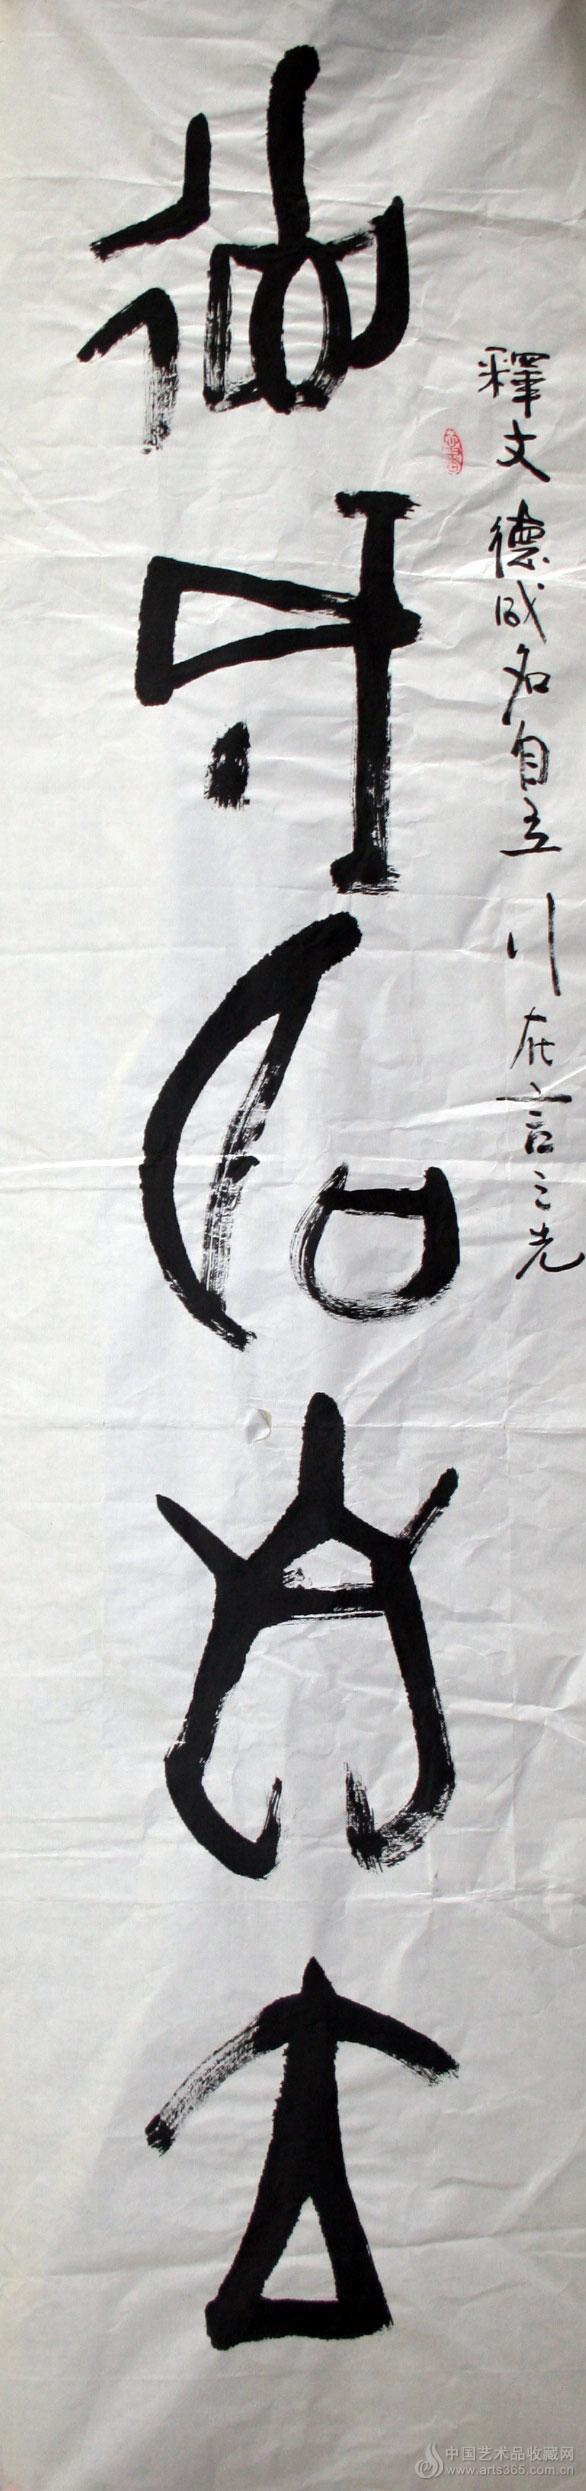 德成名自立
釋文 德成名自立 行在言之先
中国艺术品收藏网
www.arts365.com.cn